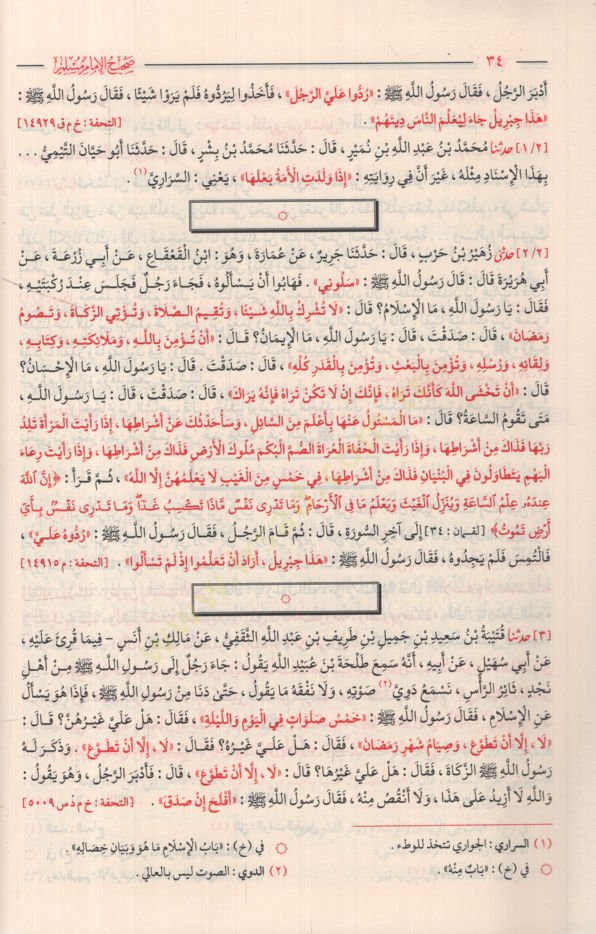 ٣٤ صحيح الإمام مسلم
أَدْبَرَ الرَّجُلُ ، فَقَالَ رَسُولُ اللَّهِ ﷺ : «رُدُّوا عَلَيَّ الرَّجُلَ» ، فَأَخَذُوا لِيَرُدُّوهُ فَلَمْ يَرَوْا شَيْئًا ، فَقَالَ رَسُولُ اللَّهِ ﷺ :
«هَذَا جِبْرِيلُ جَاءَ لِيُعَلِّمَ النَّاسَ دِينَهُمْ» . [التحفة : خ م ق ١٤٩٢٩]
[١/٢] حدثنا مُحَمَّدُ بْنُ عَبْدِ اللَّهِ بْنِ نُمَيْرٍ ، قَالَ : حَدَّثَنَا مُحَمَّدُ بْنُ بِشْرٍ ، قَالَ : حَدَّثَنَا أَبُو حَيَّانَ التَّيْمِيُّ ...
بِهَذَا الْإِسْنَادِ مِثْلَهُ ، غَيْرَ أَنَّ فِي رِوَايَتِهِ : «إِذَا وَلَدَتِ الْأَمَةُ بَعْلَهَا» ، يَعْنِي : السَّرَارِيَّ (١) .
۞
[٢/٢] حدثني زُهَيْرُ بْنُ حَرْبٍ ، قَالَ : حَدَّثَنَا جَرِيرٌ ، عَنْ عُمَارَةَ ، وَهُوَ : ابْنُ الْقَعْقَاعِ ، عَنْ أَبِي زُرْعَةَ ، عَنْ
أَبِي هُرَيْرَةَ قَالَ : قَالَ رَسُولُ اللَّهِ ﷺ : «سَلُونِي» . فَهَابُوا أَنْ يَسْأَلُوهُ ، فَجَاءَ رَجُلٌ فَجَلَسَ عِنْدَ رُكْبَتَيْهِ ،
فَقَالَ : يَا رَسُولَ اللَّهِ ، مَا الْإِسْلَامُ؟ قَالَ : «لَا تُشْرِكُ بِاللَّهِ شَيْئًا ، وَتُقِيمُ الصَّلَاةَ ، وَتُؤْتِي الزَّكَاةَ ، وَتَصُومُ
رَمَضَانَ» ، قَالَ : صَدَقْتَ ، قَالَ : يَا رَسُولَ اللَّهِ ، مَا الْإِيمَانُ؟ قَالَ : «أَنْ تُؤْمِنَ بِاللَّهِ ، وَمَلَائِكَتِهِ ، وَكِتَابِهِ ،
وَلِقَائِهِ ، وَرُسُلِهِ ، وَتُؤْمِنَ بِالْبَعْثِ ، وَتُؤْمِنَ بِالْقَدَرِ كُلِّهِ» ، قَالَ : صَدَقْتَ . قَالَ : يَا رَسُولَ اللَّهِ ، مَا الْإِحْسَانُ؟
قَالَ : «أَنْ تَخْشَى اللَّهَ كَأَنَّكَ تَرَاهُ ، فَإِنَّكَ إِنْ لَا تَكُنْ تَرَاهُ فَإِنَّهُ يَرَاكَ» ، قَالَ : صَدَقْتَ ، قَالَ : يَا رَسُولَ اللَّهِ ،
مَتَى تَقُومُ السَّاعَةُ؟ قَالَ : «مَا الْمَسْئُولُ عَنْهَا بِأَعْلَمَ مِنَ السَّائِلِ ، وَسَأُحَدِّثُكَ عَنْ أَشْرَاطِهَا ، إِذَا رَأَيْتَ الْمَرْأَةَ تَلِدُ
رَبَّهَا فَذَاكَ مِنْ أَشْرَاطِهَا ، وَإِذَا رَأَيْتَ الْحُفَاةَ الْعُرَاةَ الصُّمَّ الْبُكْمَ مُلُوكَ الْأَرْضِ فَذَاكَ مِنْ أَشْرَاطِهَا ، وَإِذَا رَأَيْتَ رِعَاءَ
الْبَهْمِ يَتَطَاوَلُونَ فِي الْبُنْيَانِ فَذَاكَ مِنْ أَشْرَاطِهَا ، فِي خَمْسٍ مِنَ الْغَيْبِ لَا يَعْلَمُهُنَّ إِلَّا اللَّهُ» ، ثُمَّ قَرَأَ : ﴿إِنَّ ٱللَّهَ
عِندَهُۥ عِلْمُ ٱلسَّاعَةِ وَيُنَزِّلُ ٱلْغَيْثَ وَيَعْلَمُ مَا فِى ٱلْأَرْحَامِ وَمَا تَدْرِى نَفْسٌ مَّاذَا تَكْسِبُ غَدًا وَمَا تَدْرِى نَفْسٌ بِأَىِّ
أَرْضٍ تَمُوتُ﴾ [لقمان : ٣٤] إِلَى آخِرِ السُّورَةِ ، قَالَ : ثُمَّ قَامَ الرَّجُلُ ، فَقَالَ رَسُولُ اللَّهِ ﷺ : «رُدُّوهُ عَلَيَّ» ،
فَالْتُمِسَ فَلَمْ يَجِدُوهُ ، فَقَالَ رَسُولُ اللَّهِ ﷺ : «هَذَا جِبْرِيلُ ، أَرَادَ أَنْ تَعَلَّمُوا إِذْ لَمْ تَسْأَلُوا» . [التحفة : م ١٤٩١٥]
۞
[٣] حدثنا قُتَيْبَةُ بْنُ سَعِيدِ بْنِ جَمِيلِ بْنِ طَرِيفِ بْنِ عَبْدِ اللَّهِ الثَّقَفِيُّ ، عَنْ مَالِكِ بْنِ أَنَسٍ - فِيمَا قُرِئَ عَلَيْهِ ،
عَنْ أَبِي سُهَيْلٍ ، عَنْ أَبِيهِ ، أَنَّهُ سَمِعَ طَلْحَةَ بْنَ عُبَيْدِ اللَّهِ يَقُولُ : جَاءَ رَجُلٌ إِلَى رَسُولِ اللَّهِ ﷺ مِنْ أَهْلِ
نَجْدٍ ، ثَائِرُ الرَّأْسِ ، نَسْمَعُ دَوِيَّ (٢) صَوْتِهِ ، وَلَا نَفْقَهُ مَا يَقُولُ ، حَتَّى دَنَا مِنْ رَسُولِ اللَّهِ ﷺ ، فَإِذَا هُوَ يَسْأَلُ
عَنِ الْإِسْلَامِ ، فَقَالَ رَسُولُ اللَّهِ ﷺ : «خَمْسُ صَلَوَاتٍ فِي الْيَوْمِ وَاللَّيْلَةِ» ، فَقَالَ : هَلْ عَلَيَّ غَيْرُهُنَّ؟ قَالَ :
«لَا ، إِلَّا أَنْ تَطَوَّعَ ، وَصِيَامُ شَهْرِ رَمَضَانَ» ، فَقَالَ : هَلْ عَلَيَّ غَيْرُهُ؟ فَقَالَ : «لَا ، إِلَّا أَنْ تَطَوَّعَ» . وَذَكَرَ لَهُ
رَسُولُ اللَّهِ ﷺ الزَّكَاةَ ، فَقَالَ : هَلْ عَلَيَّ غَيْرُهَا؟ قَالَ : «لَا ، إِلَّا أَنْ تَطَوَّعَ» ، قَالَ : فَأَدْبَرَ الرَّجُلُ ، وَهُوَ يَقُولُ :
وَاللَّهِ لَا أَزِيدُ عَلَى هَذَا ، وَلَا أَنْقُصُ مِنْهُ ، فَقَالَ رَسُولُ اللَّهِ ﷺ : «أَفْلَحَ إِنْ صَدَقَ» . [التحفة : خ م د س ٥٠٠٩]
(١) السراري : الجواري تتخذ للوطء .
۞ في (خ) : «بَابٌ مِنْهُ» .
۞ في (خ) : «بَابُ الْإِسْلَامِ مَا هُوَ وَبَيَانِ خِصَالِهِ» .
(٢) الدوي : الصوت ليس بالعالي .